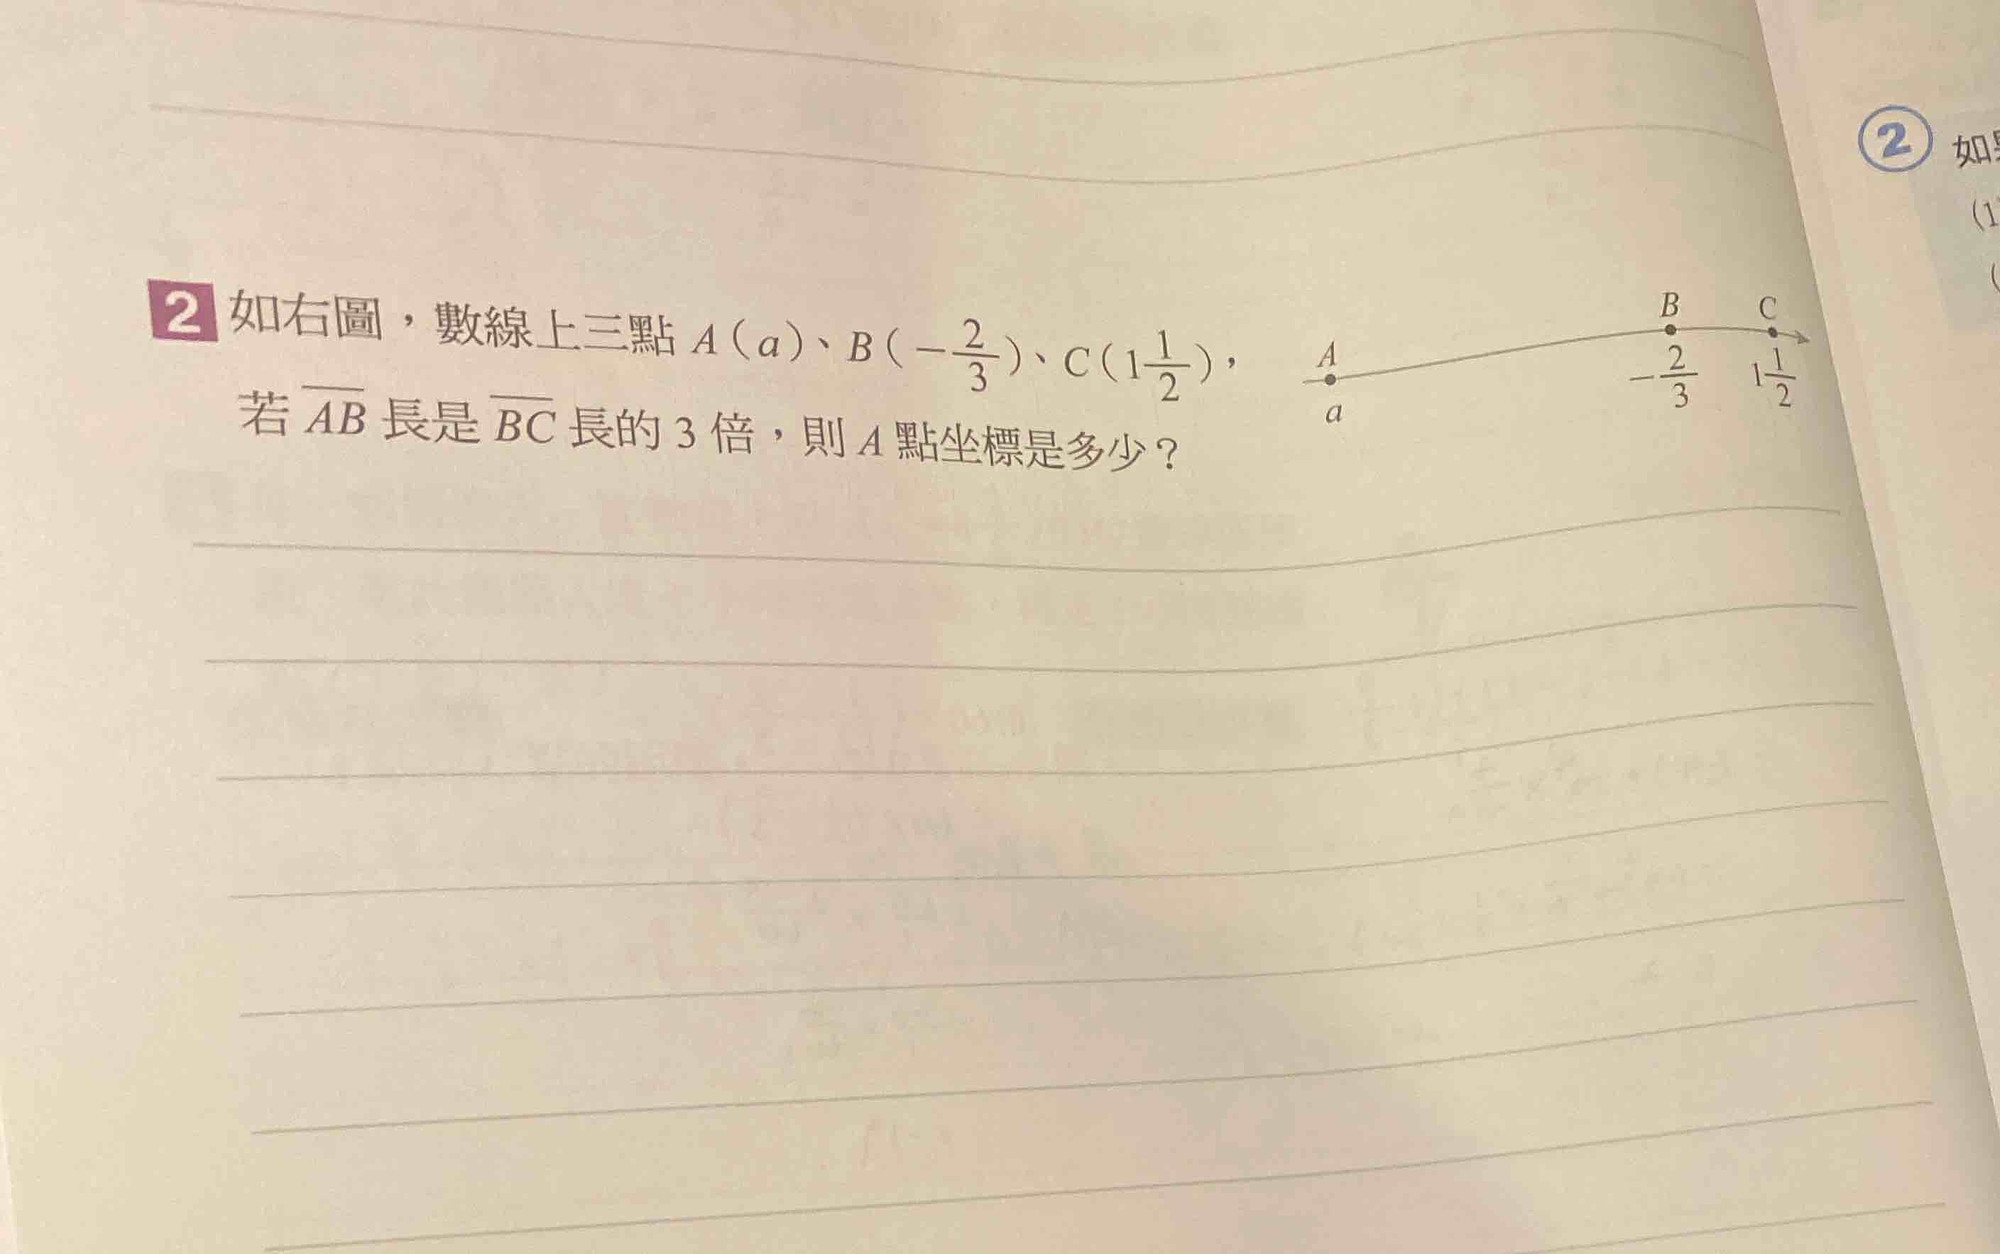 2 如右圖，數線上三點 A(a)、B(-2/3)、C(1 1/2)，
若 AB 長是 BC 長的 3 倍，則 A 點坐標是多少？
A B C
a -2/3 1 1/2
2 如
(1
(